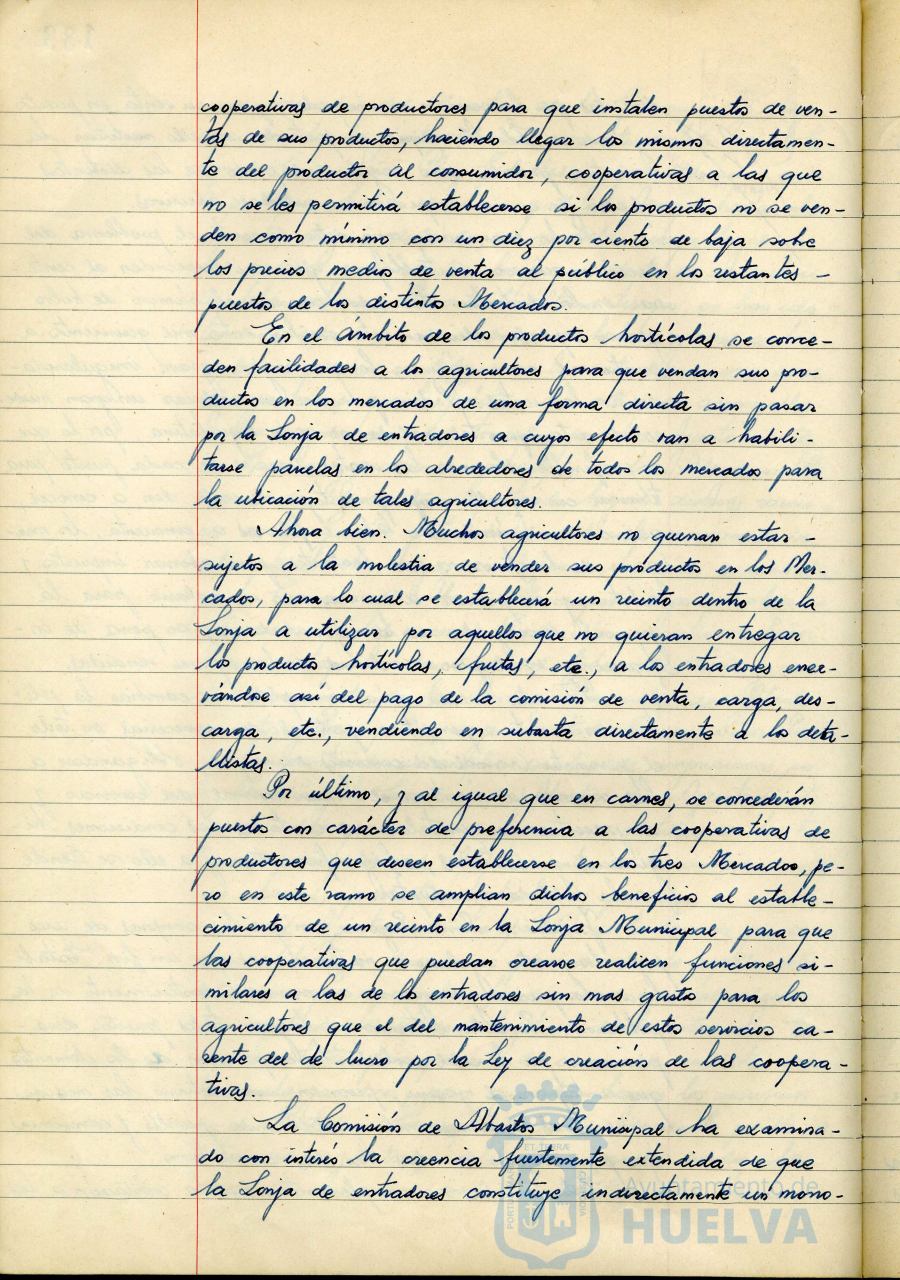 cooperativas de productores para que instalen puestos de ven-
tas de sus productos, haciendo llegar los mismos directamen-
te del productor al consumidor, cooperativas a las que
no se les permitirá establecerse si los productos no se ven-
den como mínimo con un diez por ciento de baja sobre
los precios medios de venta al público en los restantes -
puestos de los distintos Mercados.
En el ámbito de los productos hortícolas se conce-
den facilidades a los agricultores para que vendan sus pro-
ductos en los mercados de una forma directa sin pasar
por la Lonja de entradores a cuyos efecto van a habili-
tarse parcelas en los alrededores de todos los mercados para
la ubicación de tales agricultores.
Ahora bien. Muchos agricultores no querran estar -
sujetos a la molestia de vender sus productos en los Mer-
cados, para lo cual se establecerá un recinto dentro de la
Lonja a utilizar por aquellos que no quieran entregar
los productos hortícolas, frutas, etc., a los entradores ener-
vándose así del pago de la comisión de venta, carga, des-
carga, etc., vendiendo en subasta directamente a los deta-
llistas.
Por último, y al igual que en carnes, se concederán
puestos con carácter de preferencia a las cooperativas de
productores que deseen establecerse en los tres Mercados, pe-
ro en este ramo se amplian dichos beneficios al estable-
cimiento de un recinto en la Lonja Municipal para que
las cooperativas que puedan crearse realicen funciones si-
milares a las de los entradores sin mas gasto para los
agricultores que el del mantenimiento de estos servicios ca-
rente del de lucro por la Ley de creación de las coopera-
tivas.
La Comisión de Abastos Municipal ha examina-
do con interés la creencia fuertemente extendida de que
la Lonja de entradores constituye indirectamente un mono-
Ayuntamiento de
HUELVA